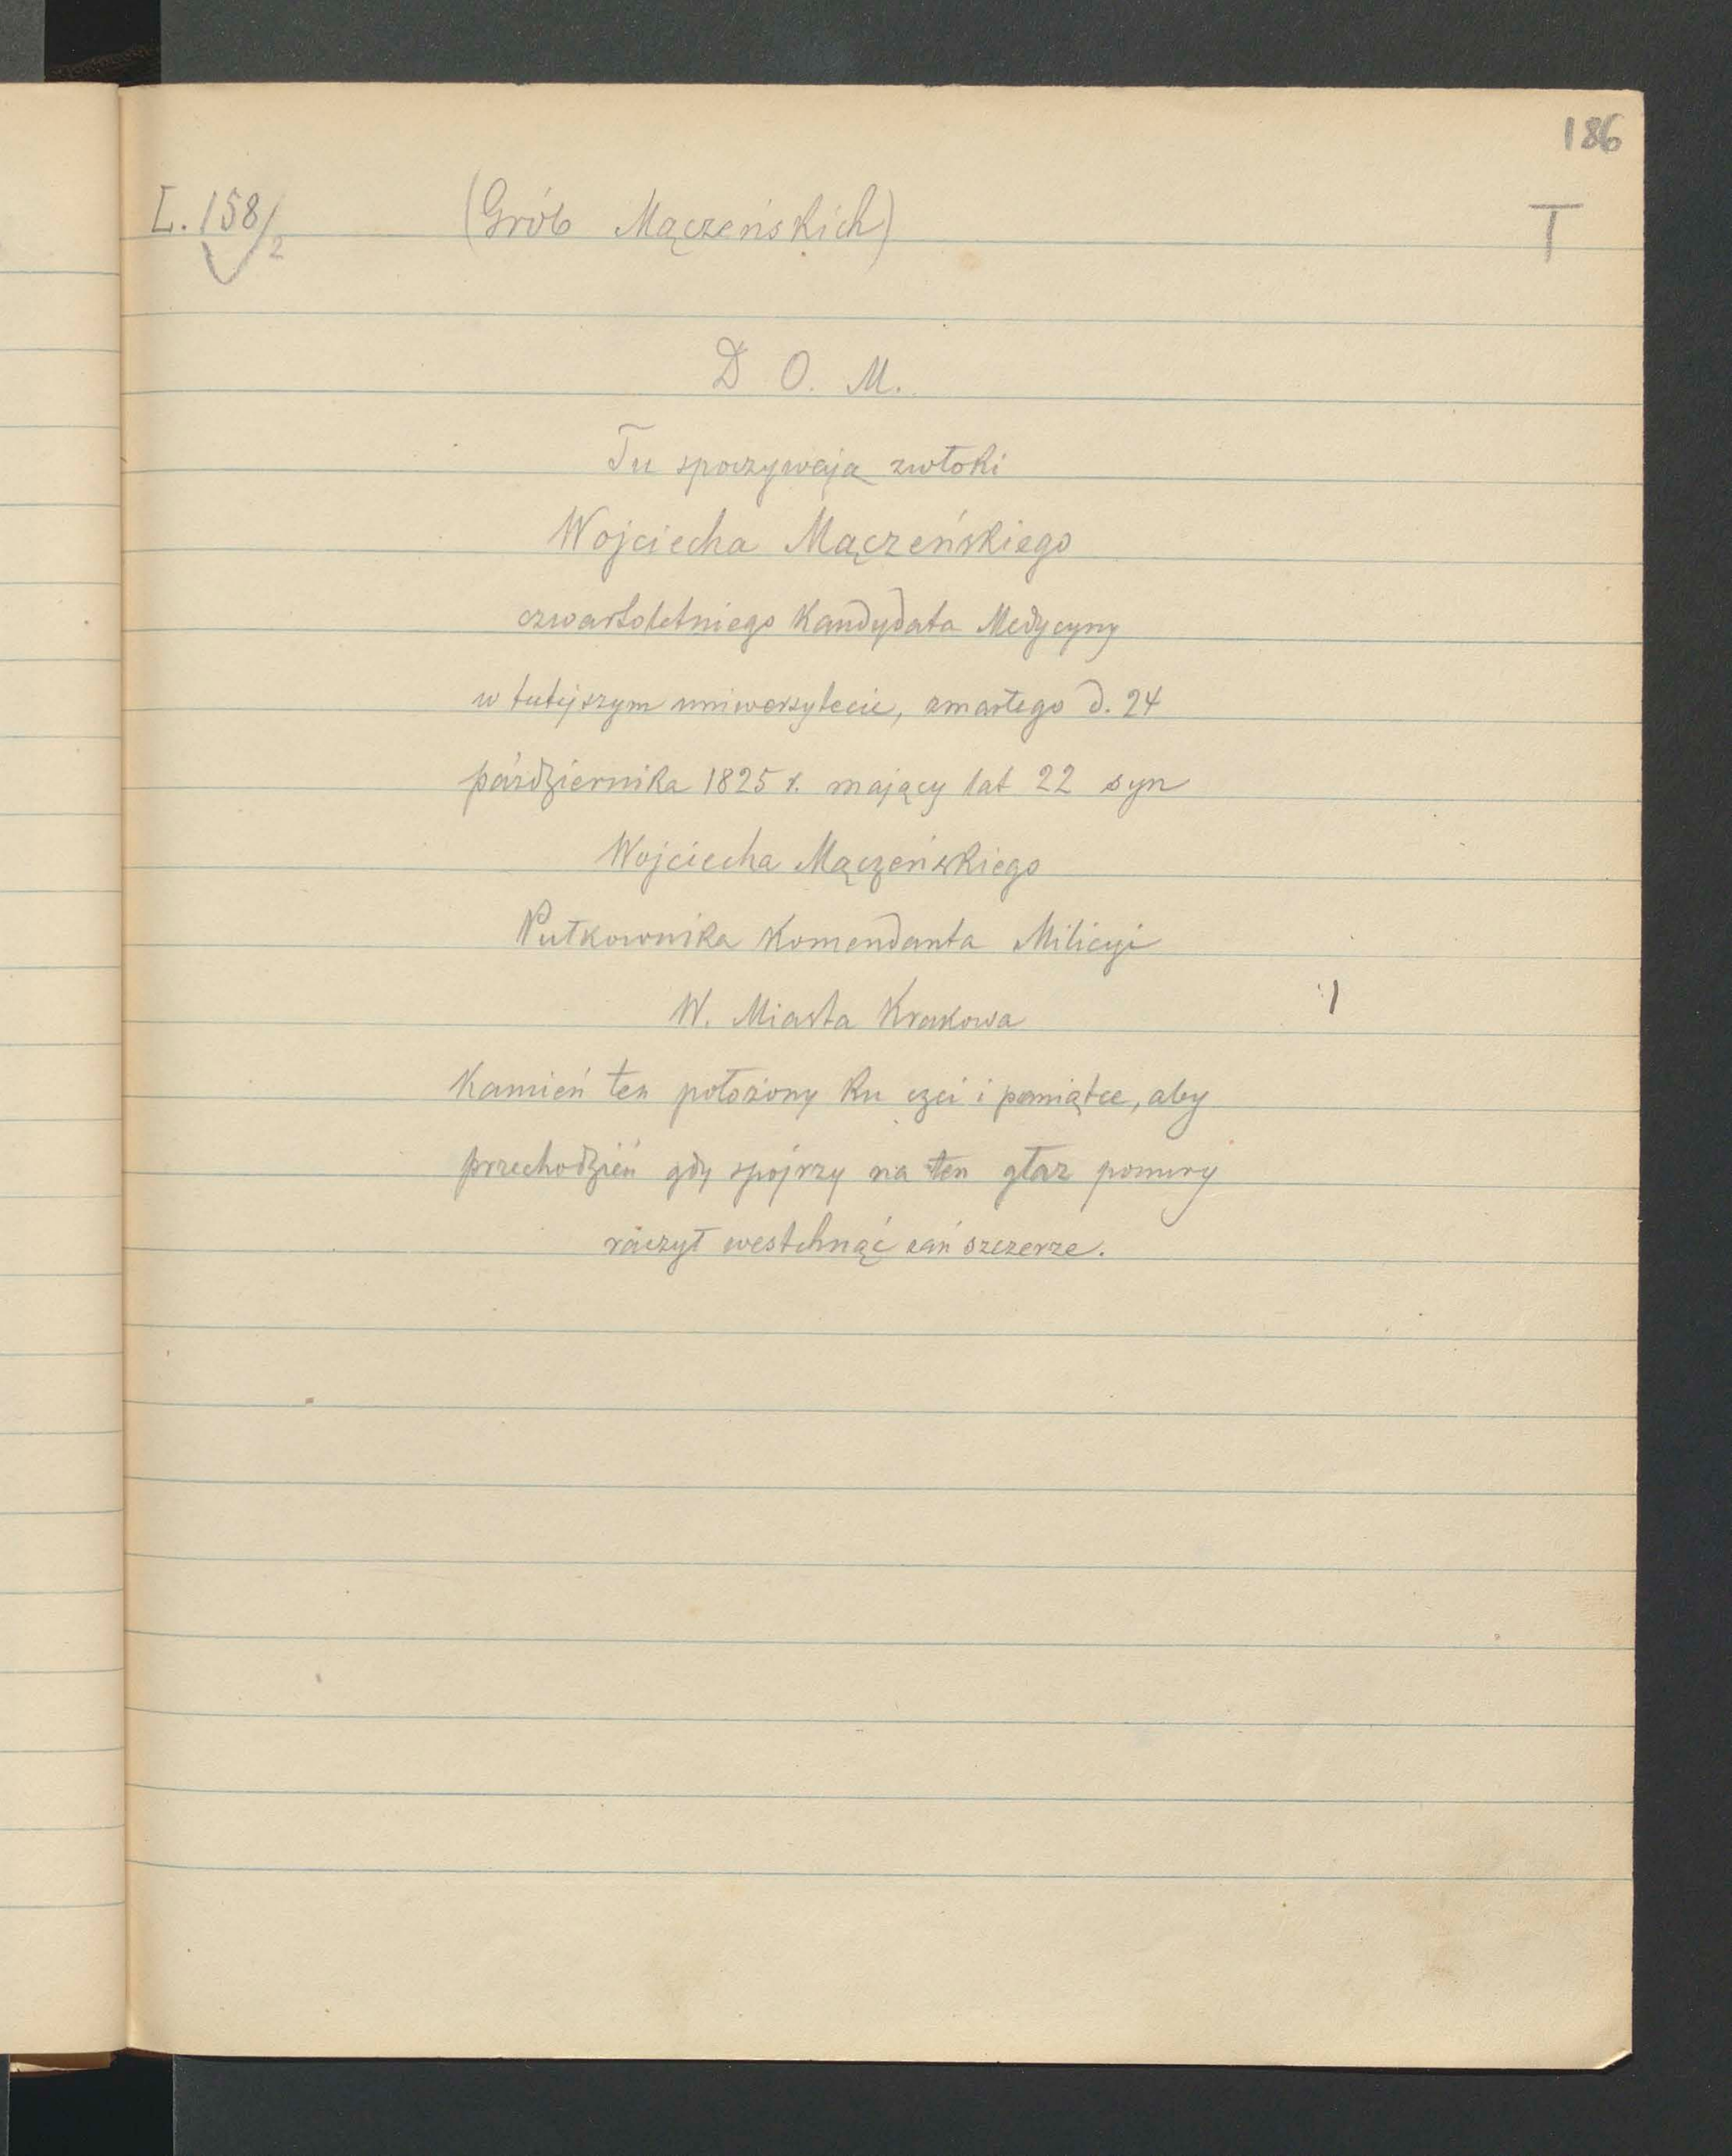 186
L. 158/2 (Grób Mączeńskich) T
D O. M.
Tu spoczywają zwłoki
Wojciecha Mączeńskiego
czwartoletniego Kandydata Medycyny
w tutejszym uniwersytecie, zmarłego d. 24
października 1825 r. mający lat 22 syn
Wojciecha Mączeńskiego
Pułkownika Komendanta Milicyi
W. Miasta Krakowa
Kamień ten położony ku czci i pamiątce, aby
przechodzień gdy spójrzy na ten głaz ponury
raczył westchnąć zań szczerze.